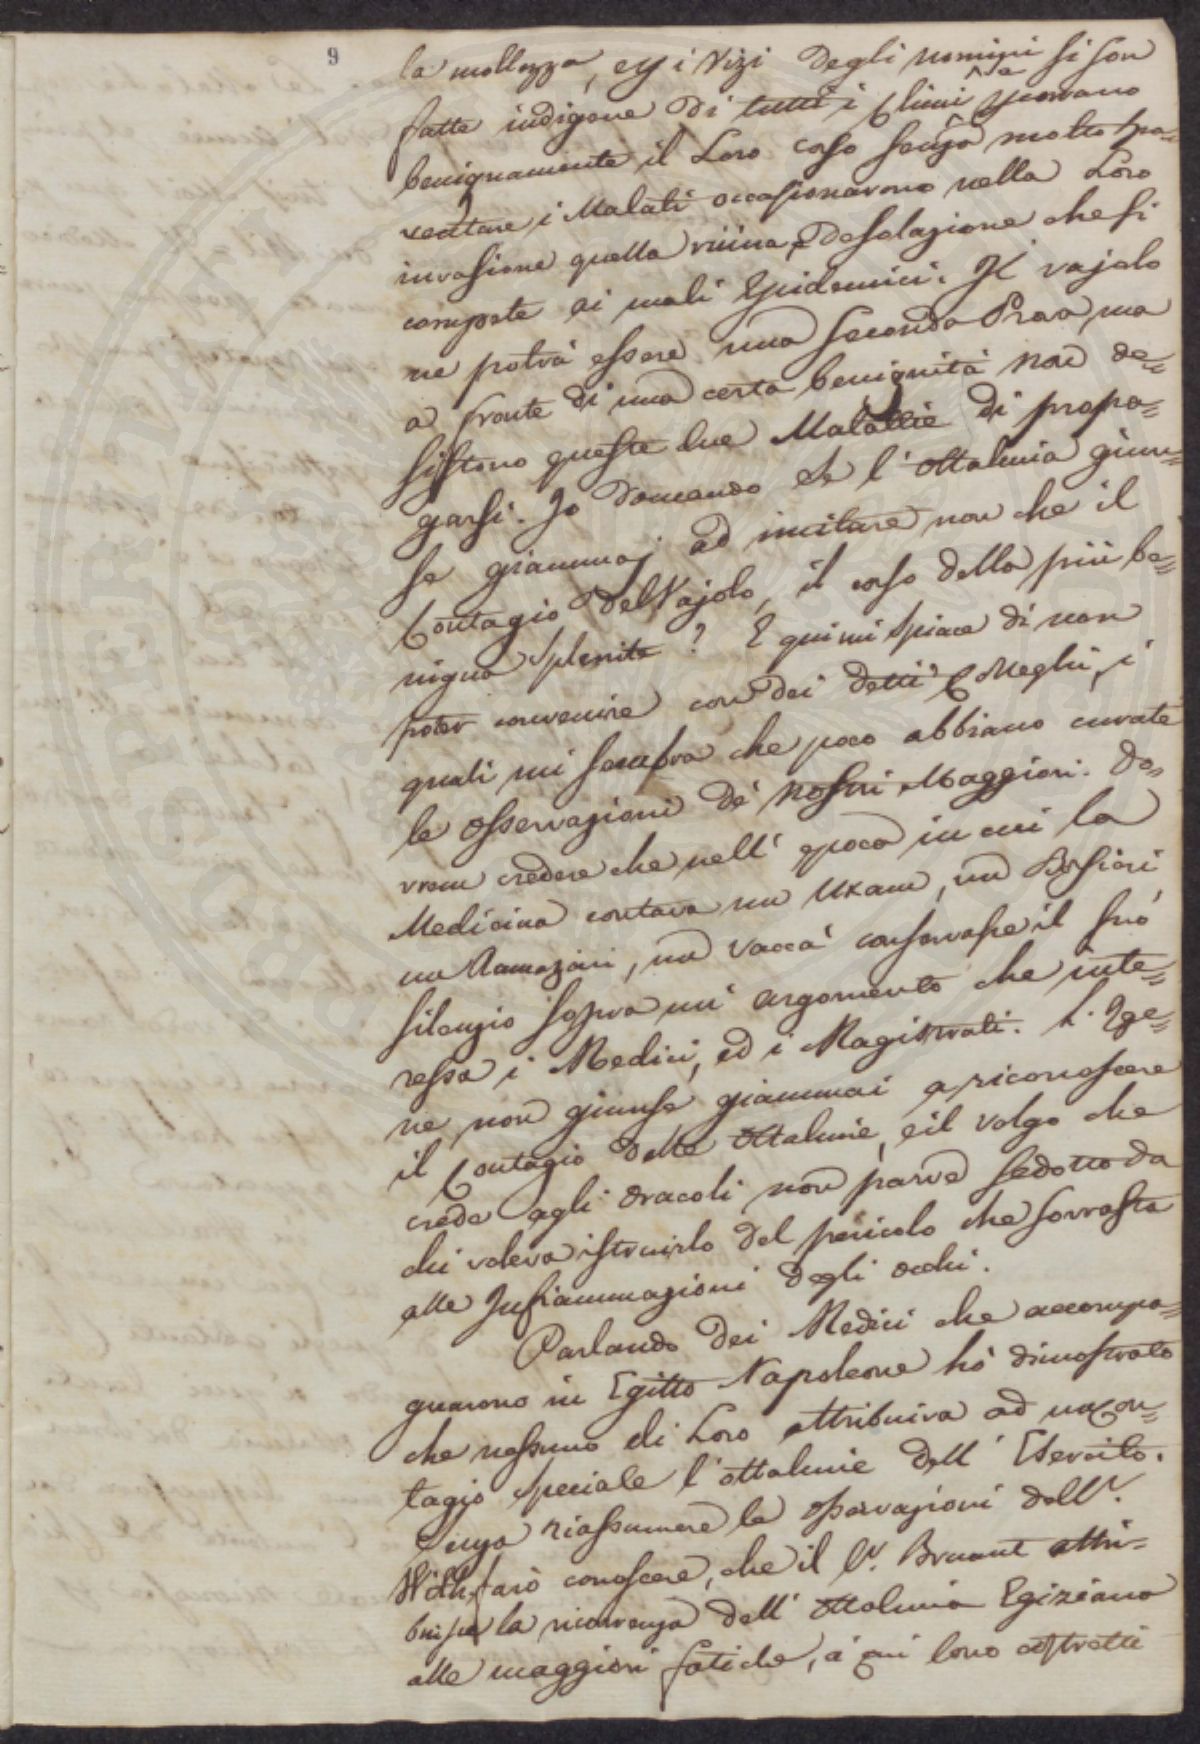 9
la mollezza, ed i Vizi degli uomini si son
fatte indigene di tutti i Climi scorrano
benignamente il Loro corso senza molto spa=
ventare i Malati occasionarono nella Loro
invasione quella ruina, e desolazione che si
compete ai mali Epidemici. Il vajolo
ne potrà essere una seconda Prova, ma
a fronte di una certa benignità non de=
sistono queste due Malattie di propa=
garsi. Io domando se l'ottalmia giun=
se giammaj ad imitare non che il
Contagio del Vajolo, il corso della più be=
nigna Splenite? E qui mi spiace di non
poter convenire con dei detti Colleghi, i
quali mi sembra che poco abbiano curate
le osservazioni de' nostri Maggiori. Do=
vrem credere che nell' epoca in cui la
Medicina contava un Uxam, un Borsieri
un Ramazini, un Vaccà conservasse il suo
silenzio sopra un' argomento che inte=
ressa i Medici, ed i Magistrati. L. Ige=
ne non giunse giammai a riconoscere
il Contagio delle Ottalmie, e il volgo che
crede agli oracoli non parve sedotto da
chi voleva istruirlo del pericolo che sovrasta
alle Infiammazioni degli occhi.
Parlando dei Medici che accompa=
gnarono in Egitto Napoleone hò dimostrato
che nessuno di Loro attribuiva ad un Con=
tagio speciale l'ottalmie dell' Esercito.
Senza riassumere le osservazioni dell
farò conoscere, che il Sr. Bruant attri=
buisce la ricorrenza dell' Ottalmia Egiziana
alle maggiori fatiche, a cui sono astretti